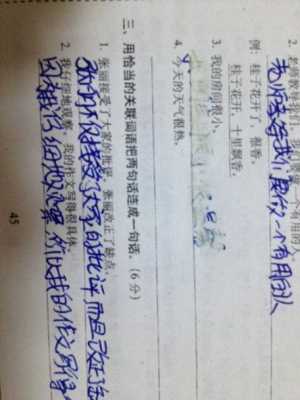 例：桂子花开，很香。
桂子花开，十里飘香。
3. 我的房间很小。
4. 今天的天气很热。
三、用恰当的关联词语把两句话连成一句话。（6分）
1. 张丽接受了大家的批评。张丽改正了缺点。
张丽不仅接受了大家的批评而且改正了缺
2. 我仔细地观察。我的作文写得很具体。
因为我仔细地观察，所以我的作文写得
45